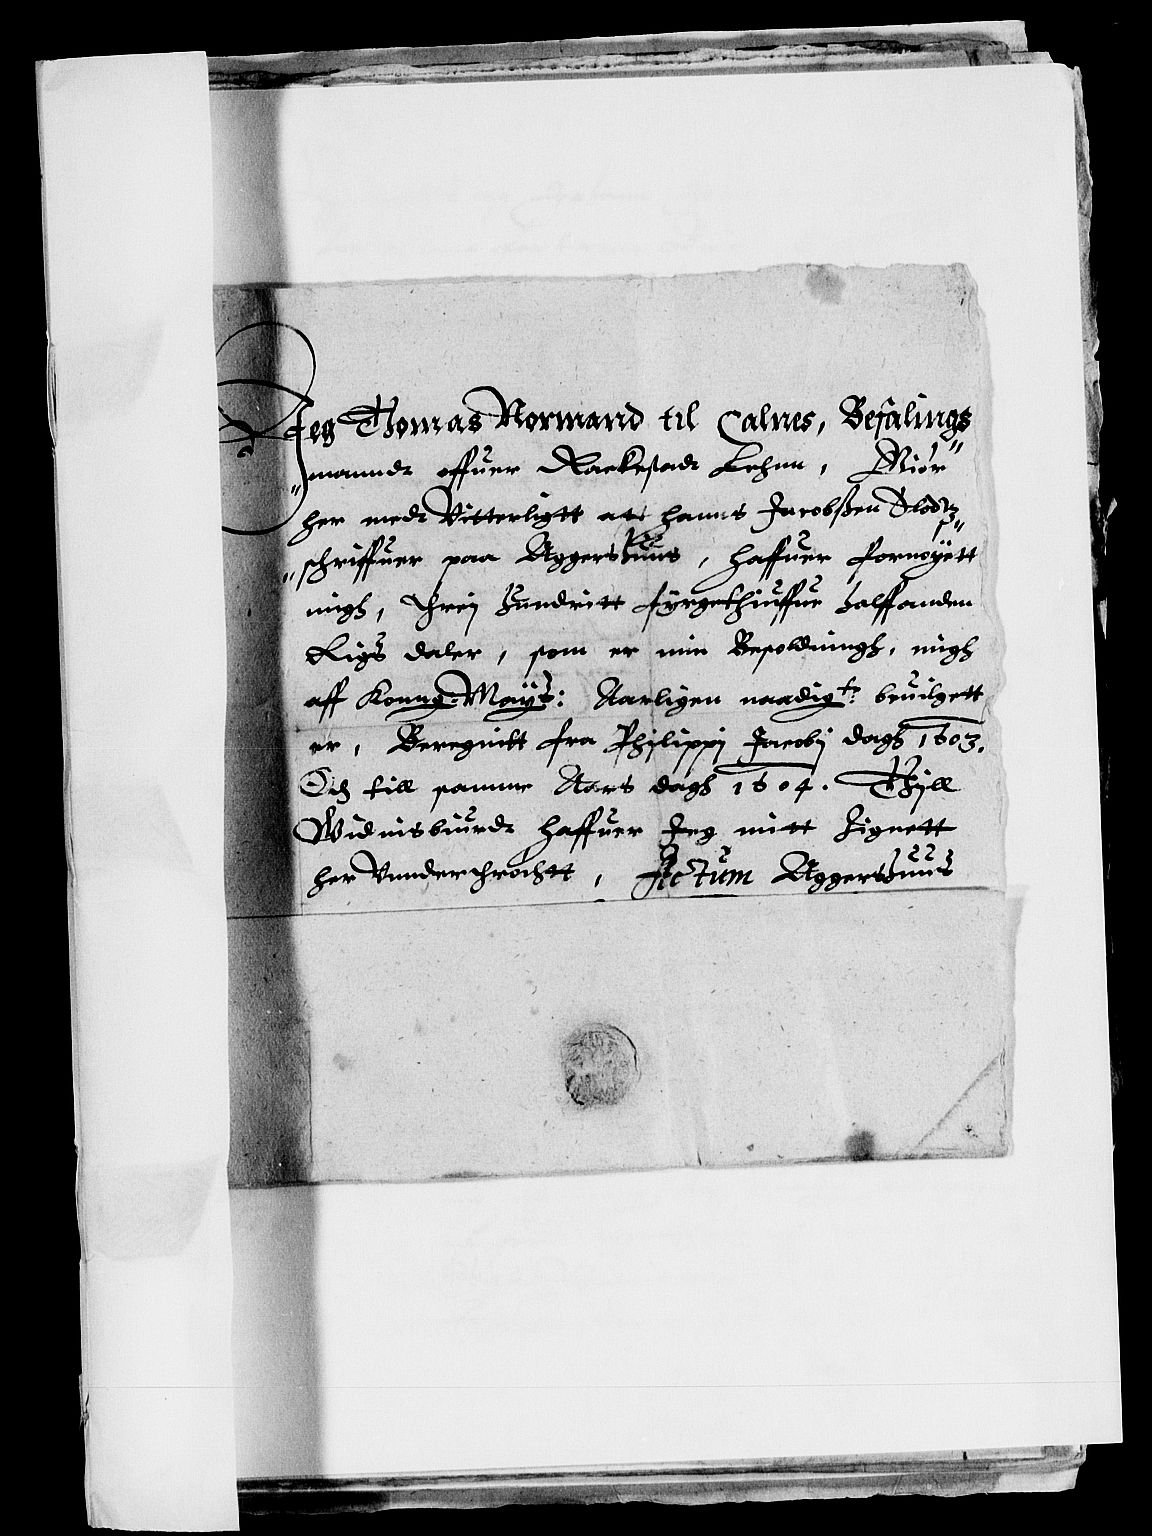 Jeg Thomas Normand til Calnes, Befalings
"mannd offuer Rackestad Lehnn, Giör"
her med Vitterligtt att hanns Jacobßen Slodtz
"schriffuer paa Aggershuus, haffuer fornöyett
migh, Threj hundritt fyrgethiuffue halffanden
Rigs daler, som er min Besoldningh, migh
aff Konng: Mayts: Aarligen naadigt: beuilgett
er, Beregnitt fra Philippi Jacobj dagh 1603.
Och till samme Aars dagh 1604. Thyll
Widnisbiurd haffuer Jeg mitt Zignett
her Vnderthröchtt, Actum Aggershuus